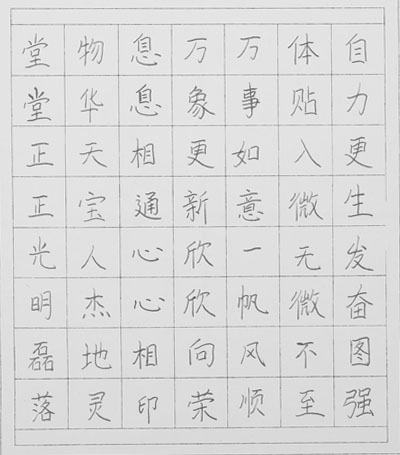 自力更生发奋图强
体贴入微无微不至
万事如意一帆风顺
万象更新欣欣向荣
息息相通心心相印
物华天宝人杰地灵
堂堂正正光明磊落